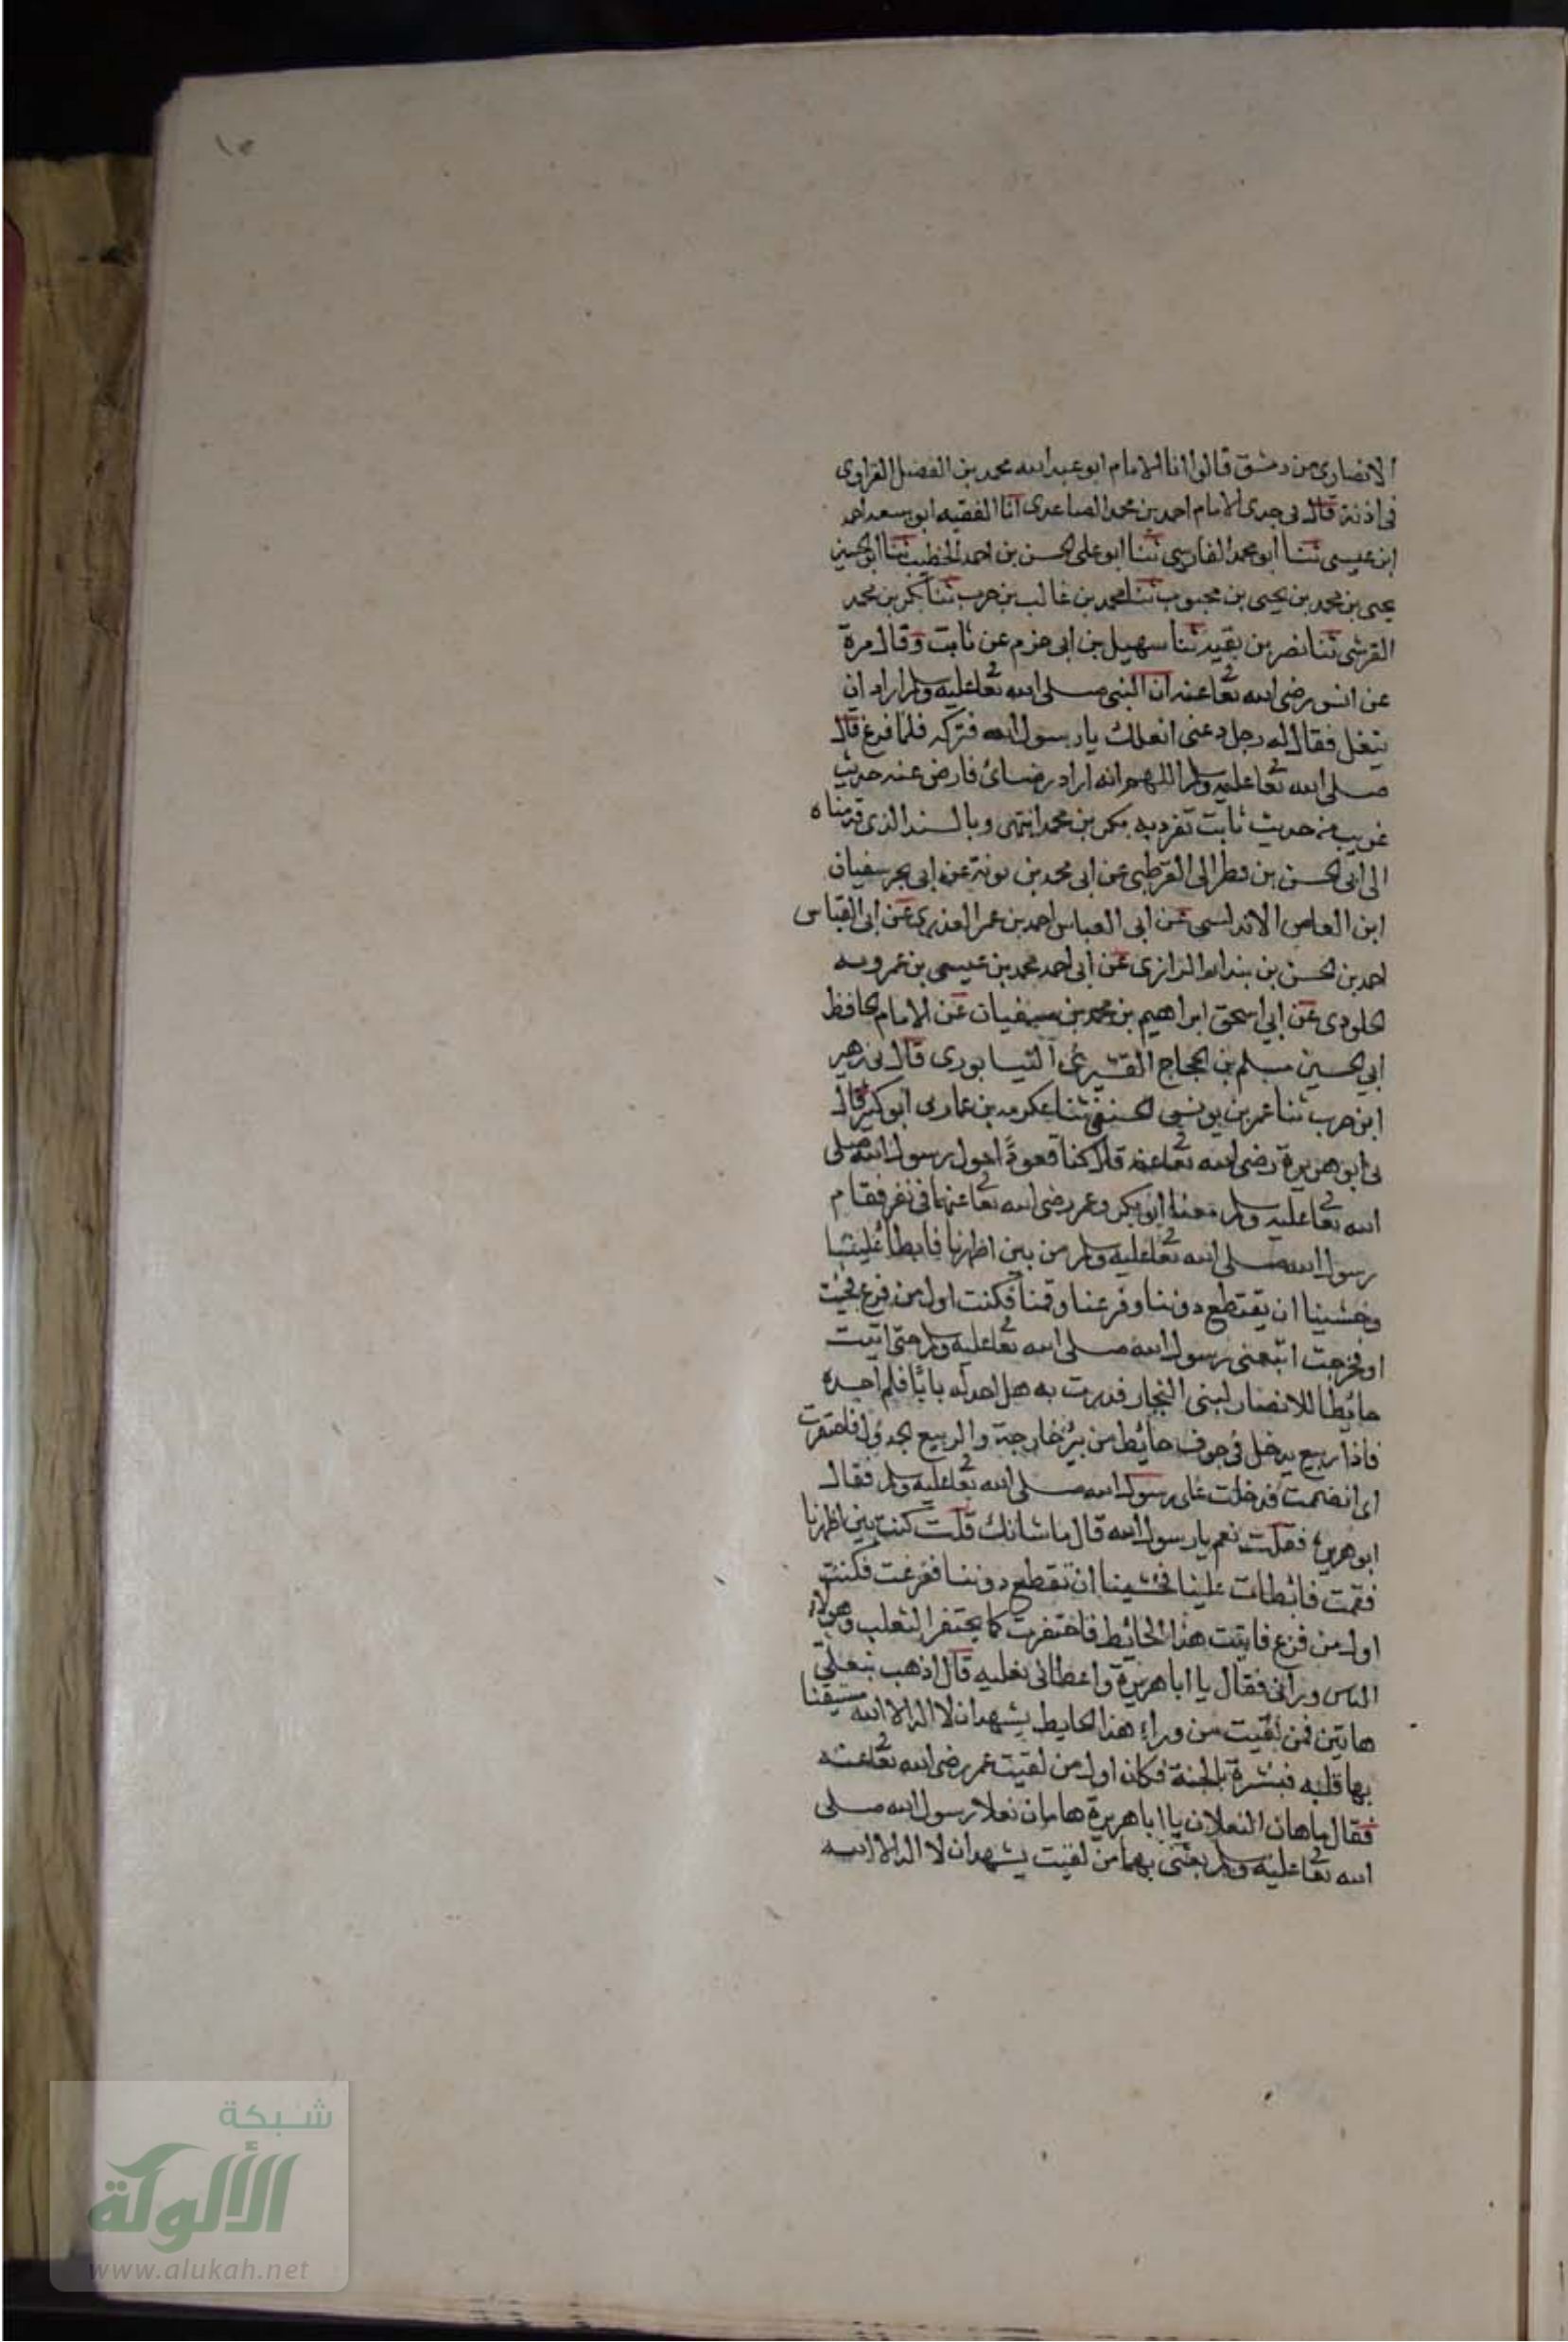 الانصاري من دمشق قالوا انا الامام ابو عبد الله محمد بن الفضل الفراوي
في اذنه قال نى جدى الامام احمد بن محمد الصاعدى انا الفقيه ابو سعد احمد
ابن عيسى ثنا ابو محمد الفارسى ثنا ابو على الحسن بن احمد الخطيب ثنا ابو الحسين
يحيى بن محمد بن يحيى بن محبوب ثنا محمد بن غالب بن حرب ثنا بكر بن محمد
القرشى ثنا نصر بن بقيه ثنا سهيل بن ابى حزم عن ثابت وقال مرة
عن انس رضى الله تعا عنه ان النبى صلى الله تعا عليه وسلم اراد ان
يتنعل فقال له رجل دعنى انعلك يا رسول الله فتركه فلما فرغ قال
صلى الله تعا عليه وسلم اللهم انه اراد رضائ فارض عنه حديث
غريب من حديث ثابت تفرد به بكر بن محمد انتهى وبالسند الذى قدمناه
الى ابى الحسن بن قطرالى القرطبى عن ابى محمد بن بونة عن ابى بحر سفيان
ابن العاص الاندلسى عن ابى العباس احمد بن عمر العذرى عن ابى العباس
احمد بن الحسن بن بندار الرازى عن ابى احمد محمد بن عيسى بن عمرويه
الجلودى عن ابي اسحق ابراهيم بن محمد بن سفيان عن الامام الحافظ
ابي الحسين مسلم بن الحجاج القشيرى النيسابورى قال نى زهير
ابن حرب ثنا عمر بن يونس الحنفى ثنا عكرمه بن عمار نى ابو كثير قال
نى ابو هريرة رضى الله تعا عنه قال كنا قعودًا حول رسول الله صلى
الله تعا عليه وسلم معنا ابو بكر وعمر رضى الله تعا عنهما فى نفر فقام
رسول الله صلى الله تعا عليه وسلم من بين اظهرنا فابطأ علينا
وخشينا ان يقتطع دوننا وفزعنا وقمنا فكنت اول من فزع فجئت
او فخرجت ابتغى رسول الله صلى الله تعا عليه وسلم حتى اتيت
حائطا للانصار لبنى النجار فدرت به هل اجد له بابًا فلم اجده
فاذا ربيع يدخل فى جوف حائط من بئر خارجة والربيع الجدول فاحتفرت
اى انضممت فدخلت على رسول الله صلى الله تعا عليه وسلم فقال
ابو هريرة فقلت نعم يا رسول الله قال ما شانك قلت كنت بين اظهرنا
فقمت فابطات علينا فخشينا ان تقطع دوننا ففزعت فكنت
اول من فزع فاتيت هذا الحائط فاحتفرت كما يحتفر الثعلب وهولاء
الناس ورائى فقال يا ابا هريرة واعطانى نعليه قال اذهب بنعلى
هاتين فمن لقيت من وراء هذا الحايط يشهد ان لا اله الا الله مستيقنا
بها قلبه فبشرة بالجنة فكان اول من لقيت عمر رضى الله تعا عنه
فقال ما هان النعلان يا ابا هريرة هاتان نعلا رسول الله صلى
الله تعا عليه وسلم بعثنى بهما من لقيت يشهد ان لا اله الا الله
شبكة
الألوكة
www.alukah.net